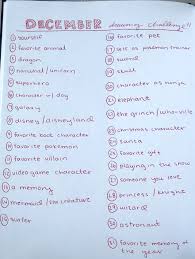 DECEMBER drawing challenge!
1 yourself
2 favorite animal
3 dragon
4 narwhal / unicorn
5 superhero
6 character w/ dog
7 galaxy
8 disney / disneyland
9 favorite book character
10 favorite pokemon
11 favorite villain
12 video game character
13 a memory
14 mermaid / sea creature
15 surfer
16 favorite food
17 self as pokemon trainer
18 sword
19 skull
20 character as ninja
21 elephant
22 the grinch / whoville
23 christmas character
24 santa
25 favorite gift
26 playing in the snow
27 someone you love
28 princess / knight
29 wizard
30 astronaut
31 favorite memory of the year